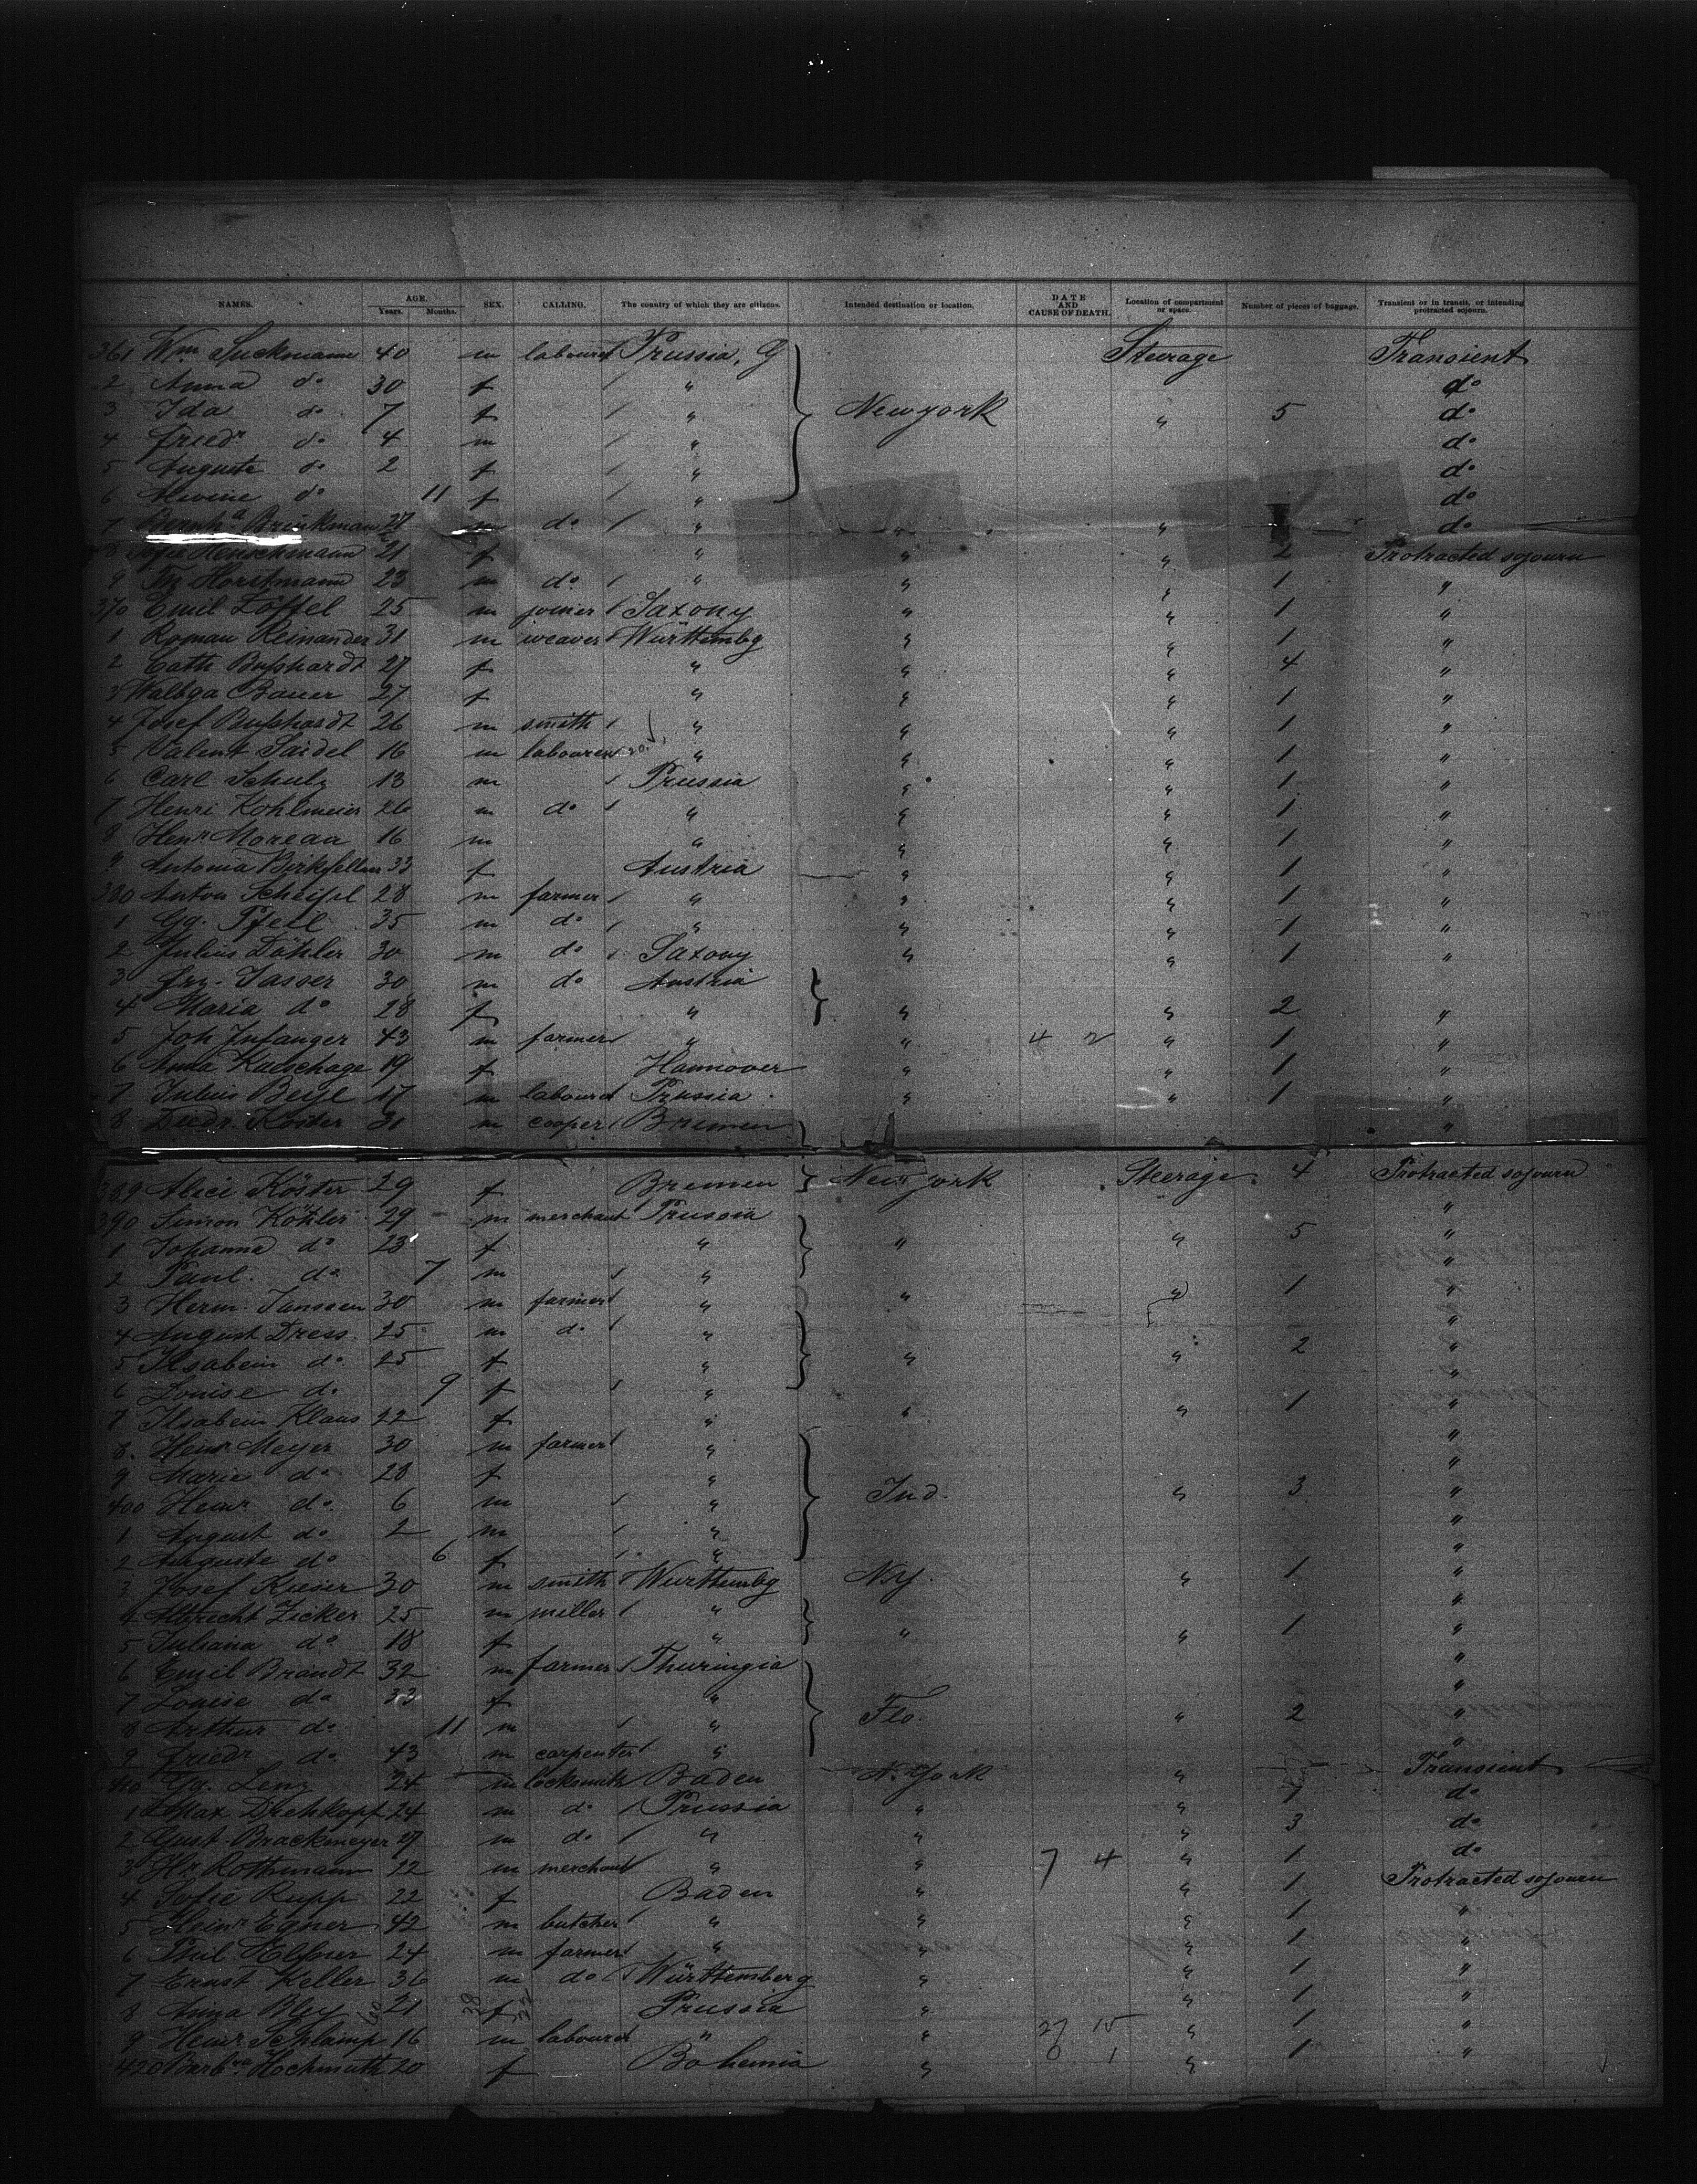 NAMES. AGE. Years. Months. SEX. CALLING. The country of which they are citizens. Intended destination or location. DATE AND CAUSE OF DEATH. Location of compartment or space. Number of pieces of baggage. Transient or in transit, or intending protracted sojourn.
361 Wm Suckmann 40 m labourer Prussia, G Steerage Transient
2 Anna do 30 f " do
3 Ida do 7 f " Newyork " 5 do
4 Friedr do 4 m " do
5 Auguste do 2 f " do
6 Alwine do 11 f " do
7 Bernhd Brinkman 27 m do " " " do
8 Sofie Henschmann 21 f " " " 2 Protracted sojourn
9 Fr. Horstmann 23 m do " " " 1 "
370 Emil Löffel 25 m joiner Saxony " " 1 "
1 Roman Reinander 31 m weaver Württembg " " 1 "
2 Cath Bußhardt 27 f " " " 4 "
3 Walbga Bauer 27 f " " " 1 "
4 Josef Bußhardt 26 m smith " " " 1 "
5 Valent Saidel 16 m labourer " " " 1 "
6 Carl Schulz 13 m Prussia " " 1 "
7 Henri Kohlmeier 26 m do " " " 1 "
8 Henr Moreau 16 m " " " 1 "
9 Antonia 33 f Austria " " 1 "
380 Anton 28 m farmer " " " 1 "
1 Gg. Pfeil 35 m do " " " 1 "
2 Julius Döhler 30 m do Saxony " " 1 "
3 Frz. Sasser 30 m do Austria
4 Maria do 28 f " " " 2 "
5 Joh Infanger 43 m farmer " " 4 2 " 1 "
6 Anna Kulschage 19 f Hannover " " 1 "
7 Julius Beyl 17 m labourer Prussia " " 1 "
8 Diedr. Köster 31 m cooper Bremen "
389 Alice Köster 29 f Bremen New York Steerage 4 Protracted sojourn
390 Simon Köhler 29 m merchant Prussia "
1 Johanna do 23 f " " " 5
2 Paul. do 7 m " "
3 Herm. Janssen 30 m farmer " " " 1 "
4 August Dress 25 m do " "
5 Ilsabein do 25 f " " " 2 "
6 Louise do 9 f " "
7 Ilsabein Klaus 22 f " " " 1 "
8 Heinr Meyer 30 m farmer " "
9 Marie do 28 f " "
400 Heinr do 6 m " Ind. " 3 "
1 August do 2 m " "
2 Auguste do 6 f " "
3 Josef Kieser 30 m smith Württembg N.Y. " 1 "
4 Albrecht Zicker 25 m miller " "
5 Juliana do 18 f " " " 1 "
6 Emil Brandt 32 m farmer Thuringia "
7 Louise do 33 f " "
8 Arthur do 11 m " Flo. " 2 "
9 Friedr do 43 m carpenter " "
410 Gg. Lenz 24 m locksmith Baden N. York " 1 Transient
1 Max Drehkopf 24 m do Prussia " " 1 do
2 Gust. Brackmeyer 27 m do " " " 3 do
3 Hr. Rothmann 22 m merchant " " 7 4 " 1 do
4 Sofie Rupp 22 f Baden " " 1 Protracted sojourn
5 Heinr Egner 42 m butcher " " " 1 "
6 Phil 24 m farmer " " " 1 "
7 Ernst Keller 36 m do Württemberg " " 1 "
8 Anna Bley 21 f Prussia " " 1 "
9 Heinr Schlamp 16 m labourer " " 27 15 " 1 "
420 Barbra Hochmuth 20 f Bohemia " 0 1 " 1 "